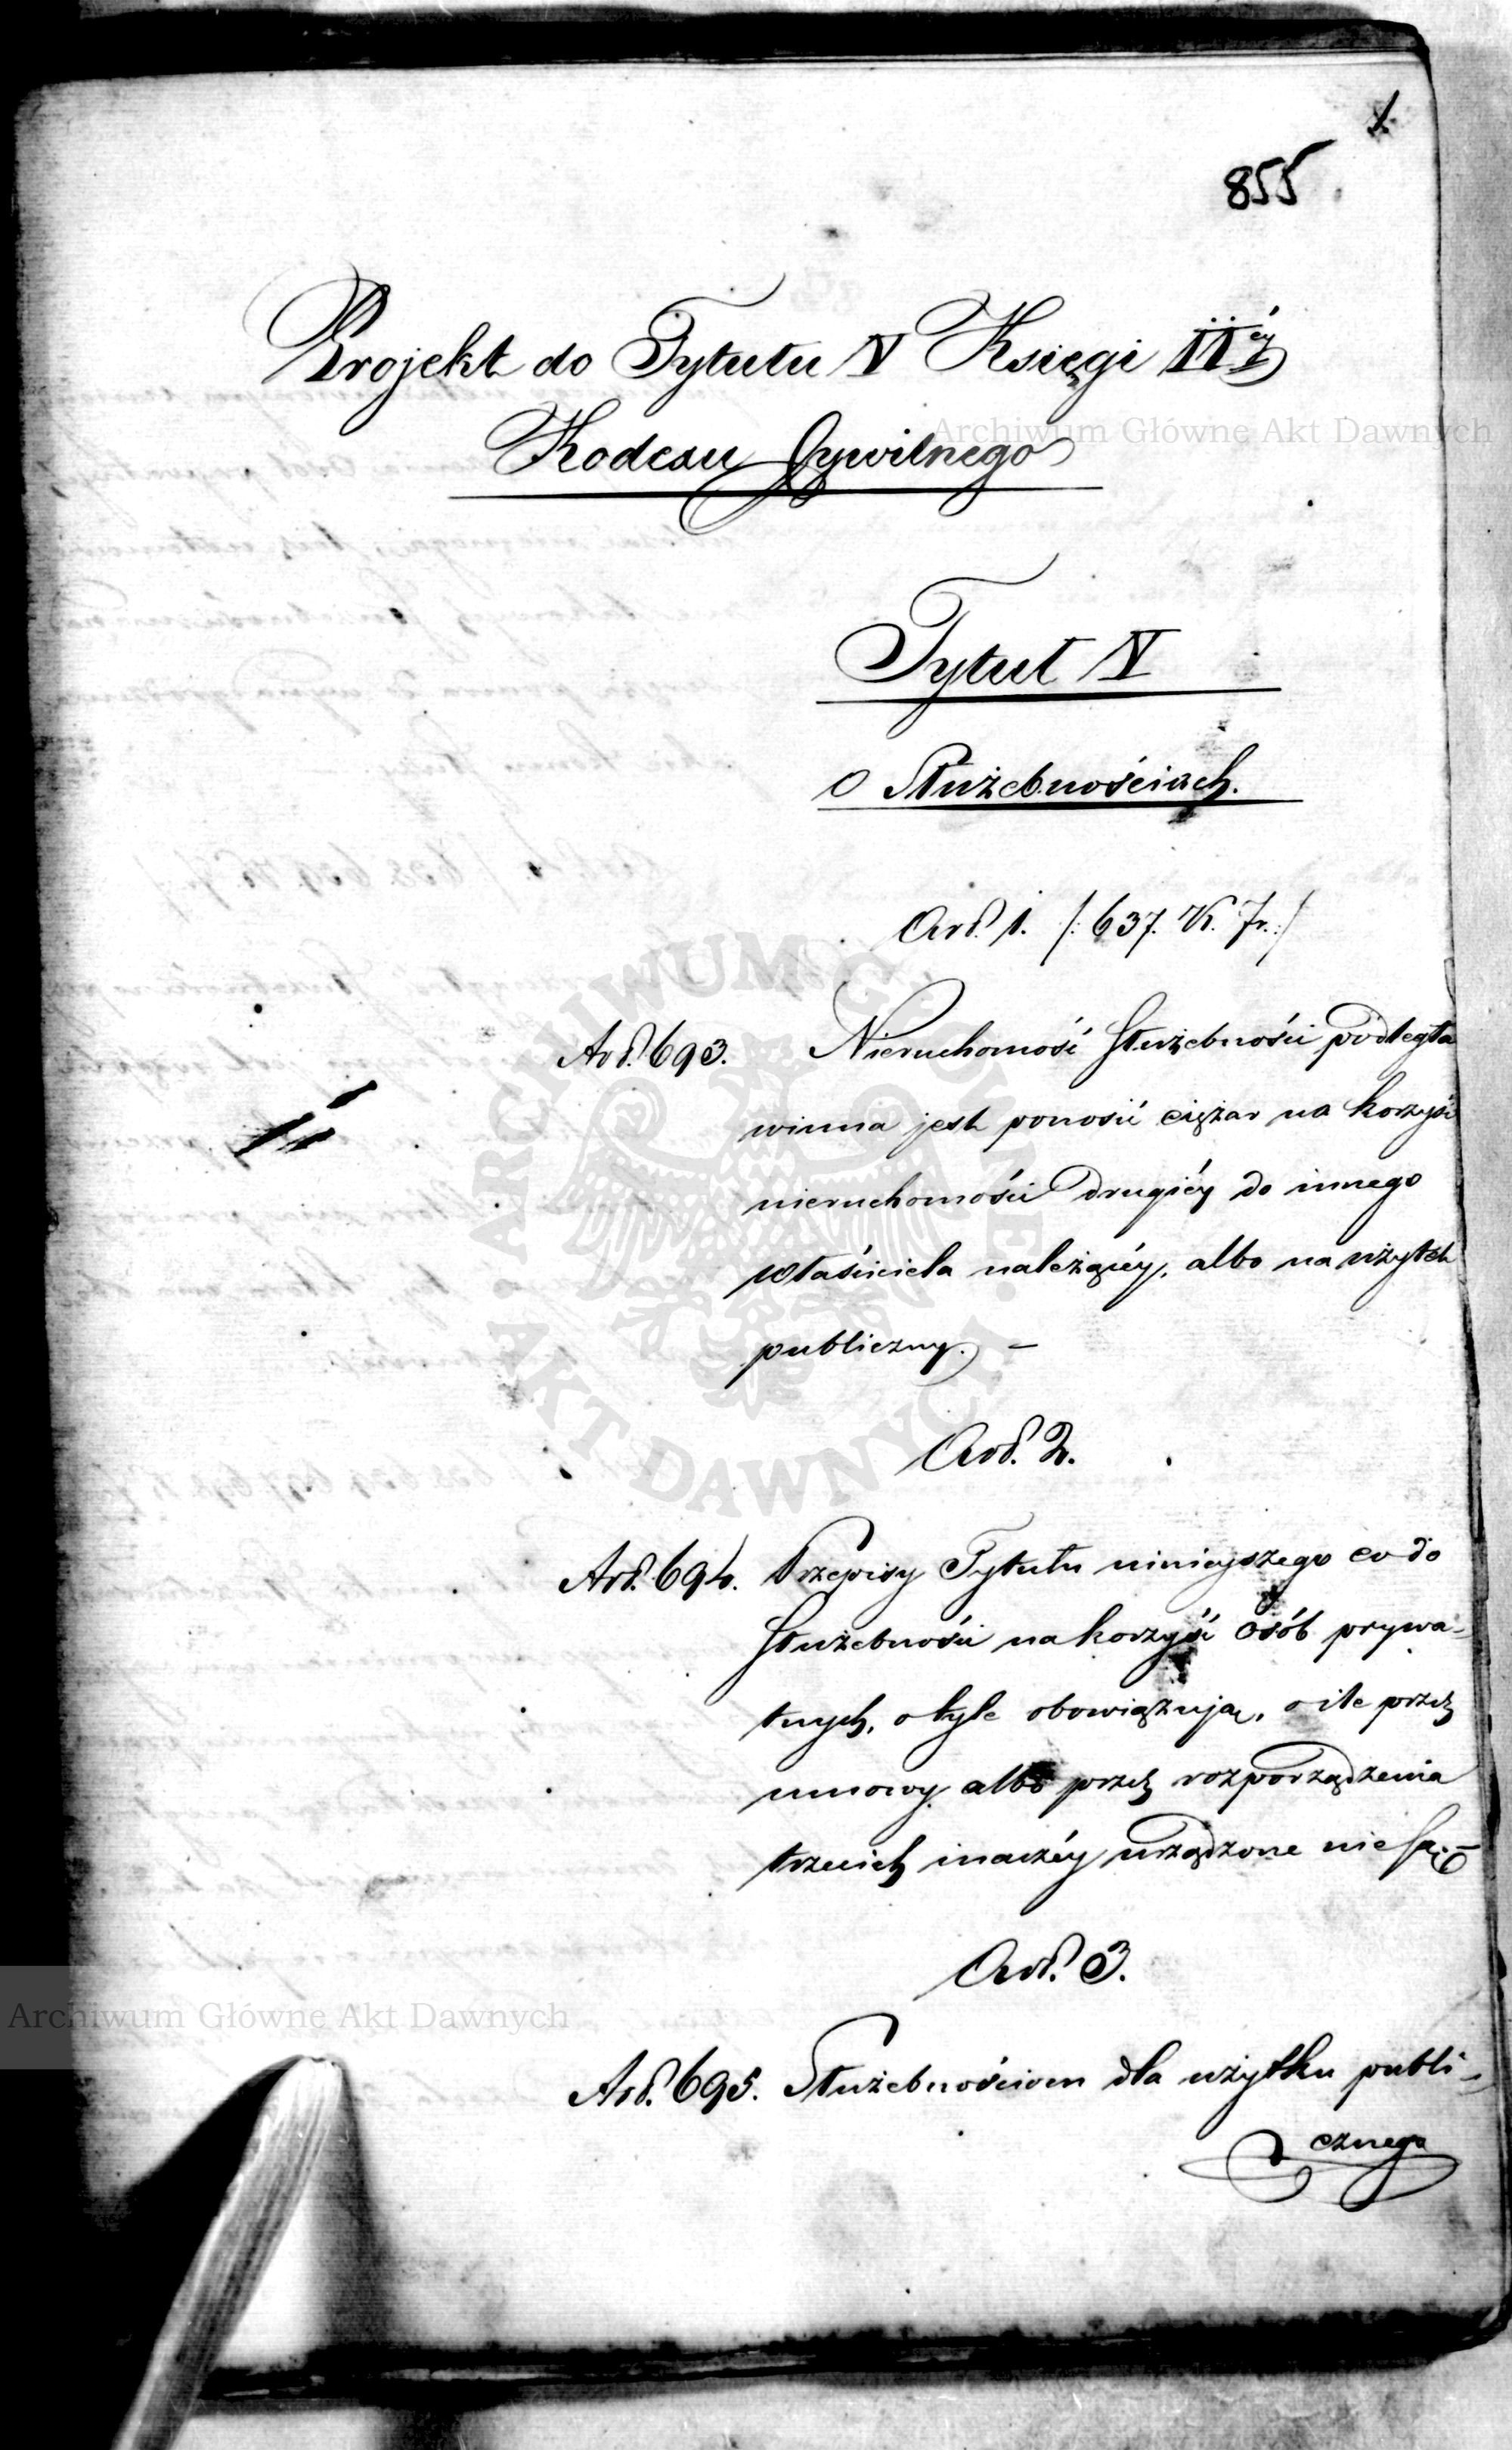 1.
855
Projekt do Tytułu IV Księgi IIéy
Kodexu Cywilnego
Archiwum Główne Akt Dawnych
Tytuł IV
O Służebnościach.
Art. 1. /: 637. K. Fr. :/
Art. 693. Nieruchomość służebności podległa
winna jest ponosić ciężar na korzyść
nieruchomości drugiéy do innego
właściciela należącéy, albo na użytek
publiczny. –
ARCHIWUM GŁÓWNE AKT DAWNYCH
Art. 2.
Art. 694. Przepisy Tytułu ninieyszego co do
służebności na korzyść osób prywa-
tnych, o tyle obowiązują, o ile przez
umowy albo przez rozporządzenia
trzecich inaczéy urządzone nie są. –
Art. 3.
Archiwum Główne Akt Dawnych
Art. 695. Służebnościom dla użytku publi-
cznego